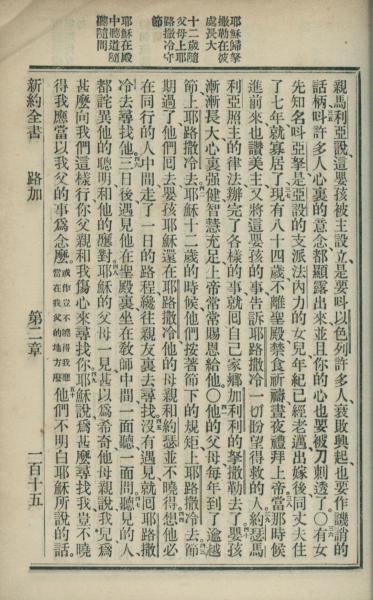 耶穌歸拏
撒勒在彼
處長大
十二歲隨
父母上耶
路撒冷守
節
耶穌在殿
中聽道隨
聽隨問
親馬利亞說這嬰孩被主設立是要呌以色列許多人衰敗興起也要作譏誚的
話柄呌許多人心裏的意念都顯露出來並且你的心也要被刀刺透了○有女
先知名呌亞拏是亞設的支派法內力的女兒年紀已經老邁出嫁後同丈夫住
了七年就寡居了現有八十四歲不離聖殿禁食祈禱晝夜禮拜上帝當那時候
進前來也讚美主又將這嬰孩的事告訴耶路撒冷一切盼望得救的人約瑟馬
利亞照主的律法辦完了各樣的事就囘自己家鄉加利利的拏撒勒去了嬰孩
漸漸長大心裏强健智慧充足上帝常常賜恩給他○他的父母每年到了逾越
節上耶路撒冷去耶穌十二歲的時候他們按著節下的規矩上耶路撒冷去節
期過了他們囘去嬰孩耶穌還在耶路撒冷他的母親和約瑟並不曉得想他必
在同行的人中間走了一日的路程纔往親友裏去尋找沒有遇見就囘耶路撒
冷去尋找他三日後遇見他在聖殿裏坐在敎師中間一面聽一面問聽見的人
都詫異他的聰明和他的應對耶穌的父母一見甚以爲希奇他母親說我兒爲
甚麼向我們這樣行你父親和我傷心來尋找你耶穌說爲甚麼尋找我豈不曉
得我應當以我父的事爲念麼或作豈不曉得我應當在我父的地方麼他們不明白耶穌所說的話
新約全書 路加 第二章 一百十五